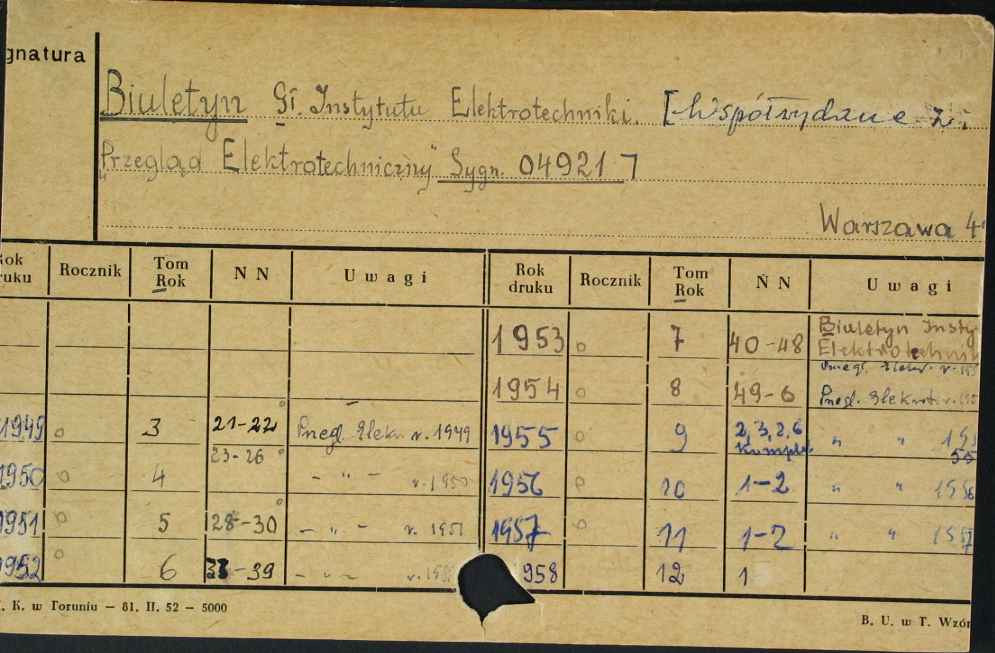 gnatura
Biuletyn Gł. Instytutu Elektrotechniki. [Współwydane z:
"Przegląd Elektrotechniczny" Sygn. 04921]
Warszawa 4
Rok druku Rocznik Tom Rok N N Uwagi Rok druku Rocznik Tom Rok N N Uwagi
1953 o 7 40-48 Biuletyn Insty Elektrotechnik
1954 o 8 49-6 Przegl. Elektrot.
1949 o 3 21-22 Przegl. Elekr. r. 1949 1955 o 9 2,3,2,6 Komplet " "
23-26
1950 o 4 - " - r. 1950 1956 o 10 1-2 " " 1956
1951 o 5 28-30 - " - r. 1951 1957 o 11 1-2 " " 1957
1952 o 6 33-39 - " - 1958 12 1
. K. w Toruniu — 81. II. 52 — 5000
B. U. w T. Wzór